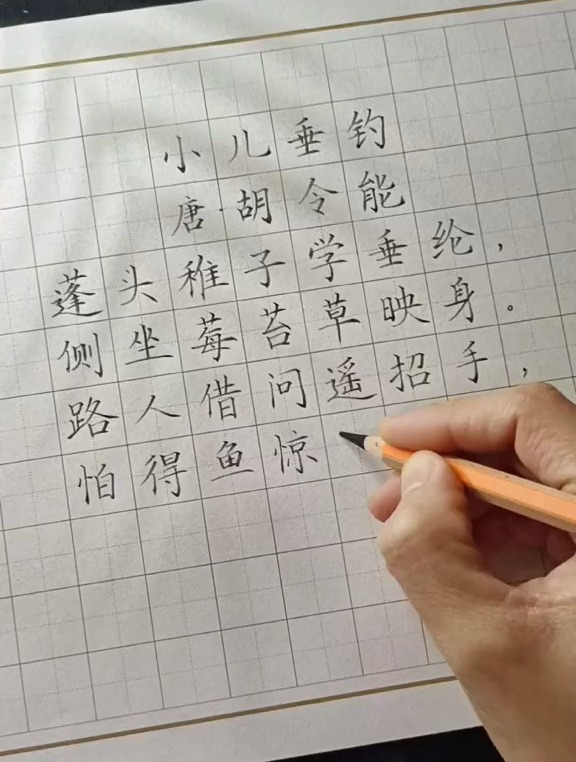 小儿垂钓
唐·胡令能
蓬头稚子学垂纶，
侧坐莓苔草映身。
路人借问遥招手，
怕得鱼惊